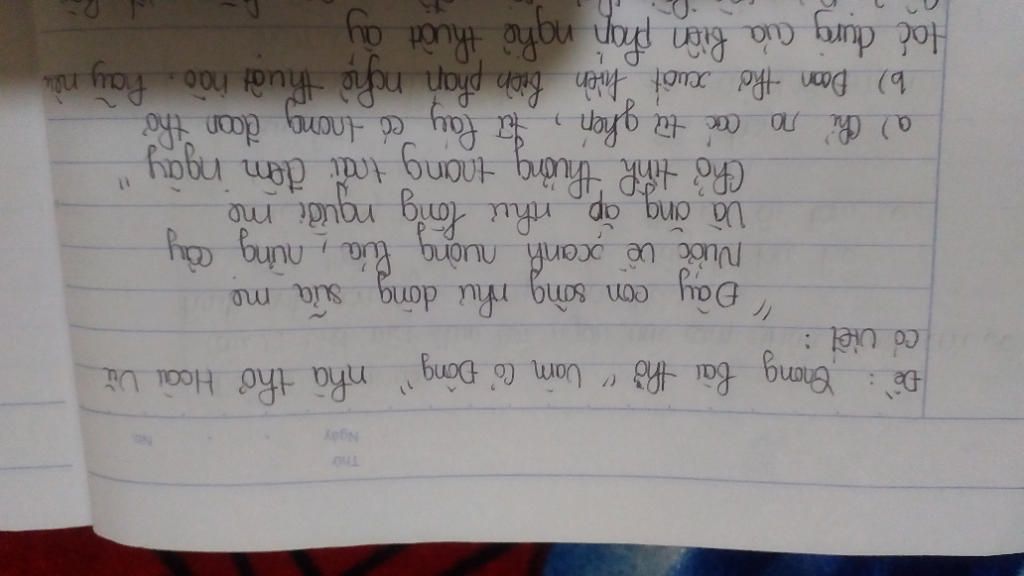 Thứ
Ngày No.
Đề: Trong bài thơ "Vàm Cỏ Đông" nhà thơ Hoài Vũ
có viết:
"Đây con sông như dòng sữa mẹ
Nước về xanh ruộng lúa, nừng cây
Và ăng ắp như lòng người mẹ
Chở tình thương trang trải đêm ngày"
a) Chỉ ra các từ ghép, từ láy có trong đoạn thơ
b) Đoạn thơ xuất hiện biện pháp nghệ thuật nào. Hãy nêu
tác dụng của biện pháp nghệ thuật ấy